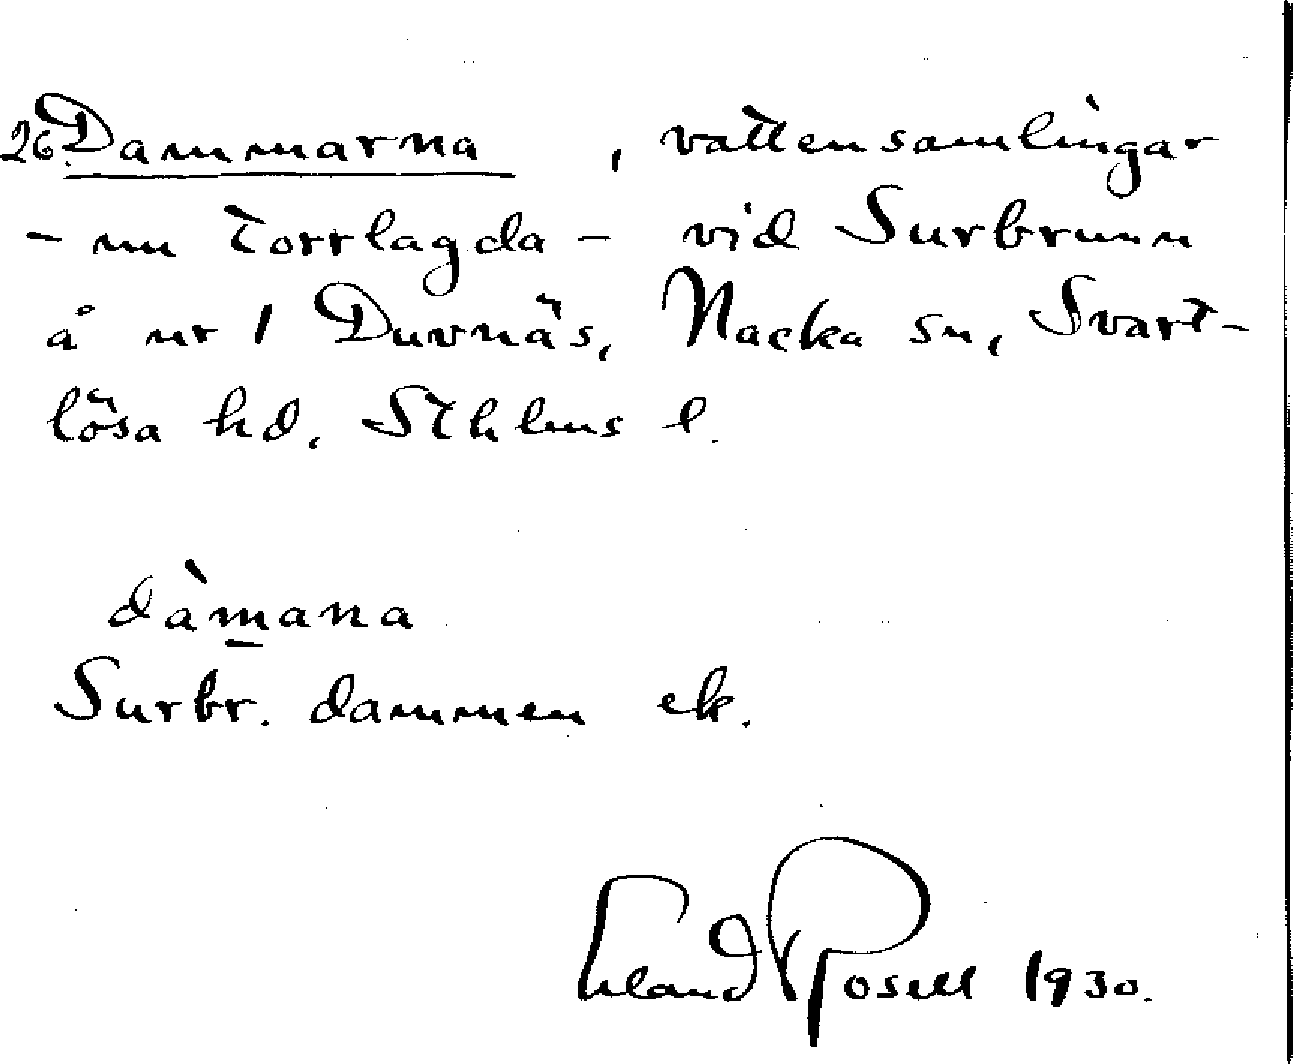 26. Dammarna, vattensamlingar
- nu torrlagda - vid Surbrunn
å nr 1 Duvnäs, Nacka sn, Svart-
lösa hd, Sthlms l.
dàm̱ana
Surbr. dammen ek.
Erland Rosell 1930.